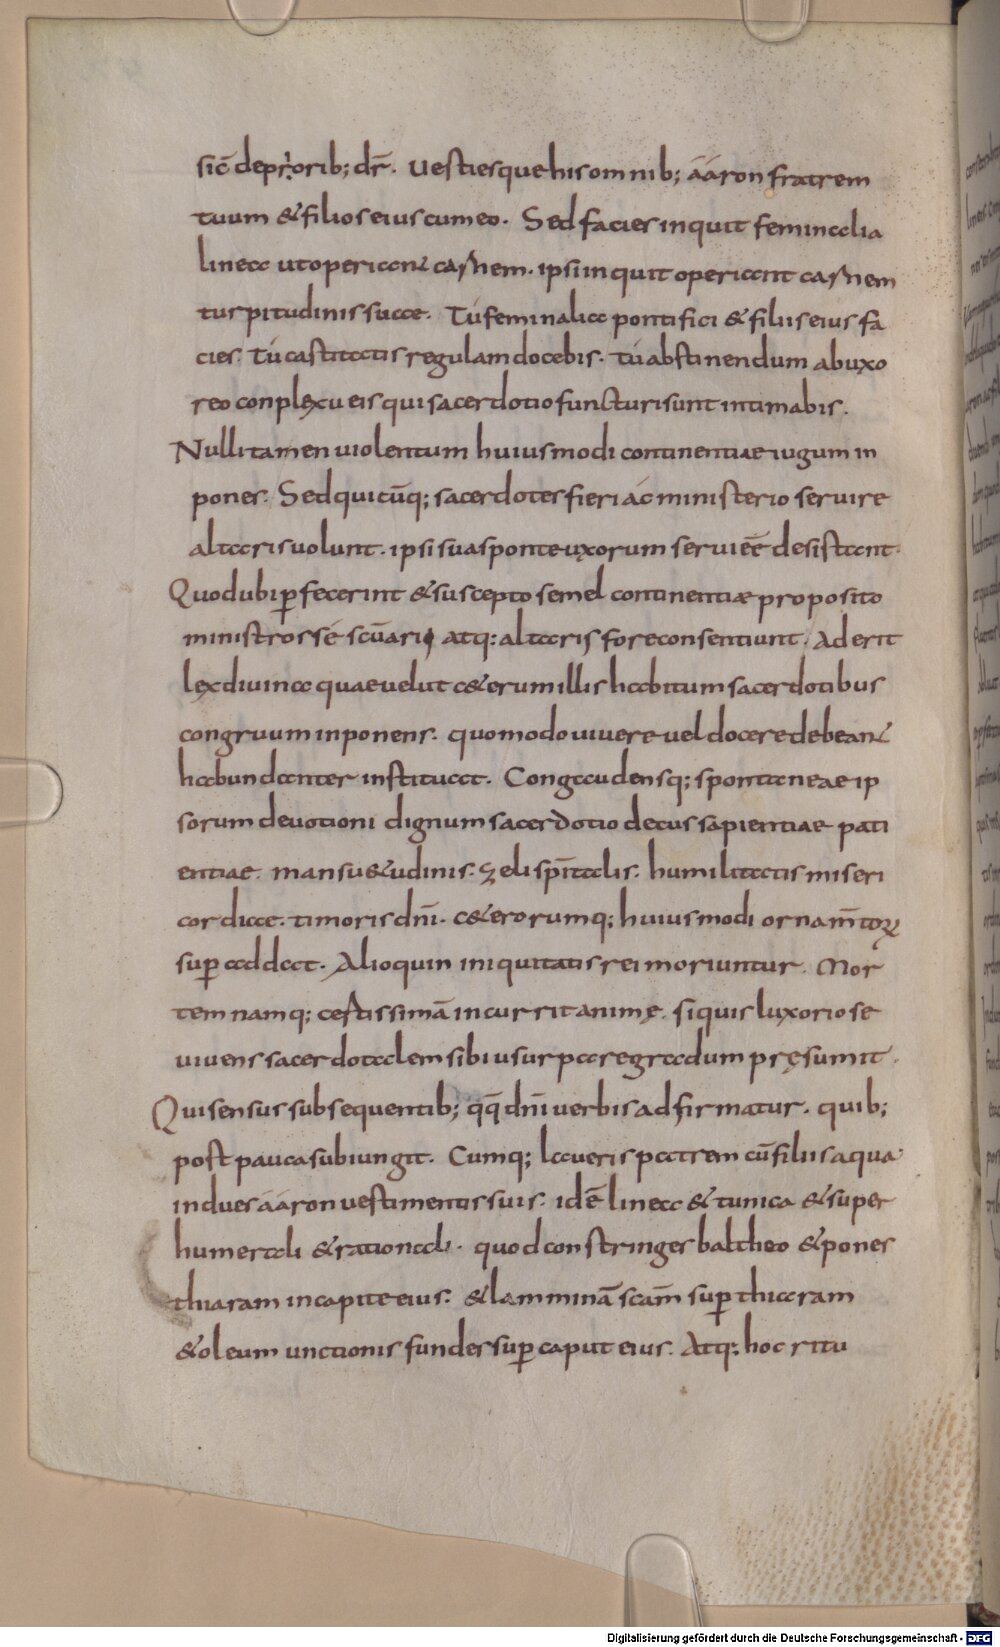 sic̄ de prioribꝫ dr̄. Uestiesque his omnibꝫ ááron fratrem
tuum & filios eius cum eo. Sed facies inquit feminalia
linea ut operiant carnem. ipsi inquit operiant carnem
turpitudinis suae. Tú feminalia pontifici & filiis eius fa
cies. Tú castitatis regulam docebis. tú abstinendum ab uxo
reo conplexu eis qui sacerdotio functuri sunt intimabis.
Nulli tamen uiolentum huiusmodi continentiae iugum in
pones. Sed quicūqꝫ sacerdotes fieri ác ministerio seruire
altaris uolunt. ipsi sua sponte uxorum seruiēē desistant.
Quod ubi ꝑfecerint & suscepto semel continentiæ proposito
ministros sé scūarii atqꝫ altaris fore consentiunt. Aderit
lex diuina quae uelut c&erum illis habitum sacerdotibus
congruum inponens. quomodo uiuere uel docere debeant
habundanter instituat. Congaudensqꝫ spontaneae ip
sorum deuotioni dignum sacerdotio decus sapientiae pati
entiae. mansu&udinis. zeli spīitalis. humilitatis miseri
cordiae. timoris dn̄i. c&erorumqꝫ huiusmodi ornam̄toꝝ
suꝑ addat. Alioquin iniquitatis rei moriuntur. Mor
tem namqꝫ certissimā incurrit animę. si quis luxoriose
uiuens sacerdotalem sibi usurpare gradum pręsumit.
Qui sensus subsequentibꝫ qq̄ dn̄i uerbis adfirmatur. quibꝫ
post pauca subiungit. Cumqꝫ laueris patrem cū filiis aqua
indues ááron uestimentis suis. idē linea & tunica & super
humerali & rationali. quod constringes baltheo & pones
thiaram in capite eius. & lamminā scām suꝑ thiaram
& oleum unctionis fundes suꝑ caput eius. Atqꝫ hoc ritu
Digitalisierung gefördert durch die Deutsche Forschungsgemeinschaft - DFG